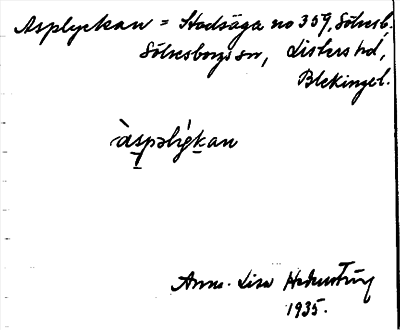 Asplyckan = Stadsäga no 359, Sölvesb.
Sölvesborgs sn, Listers hd,
Blekinge l.
àspəlýkan
Anna-Lisa
1935.